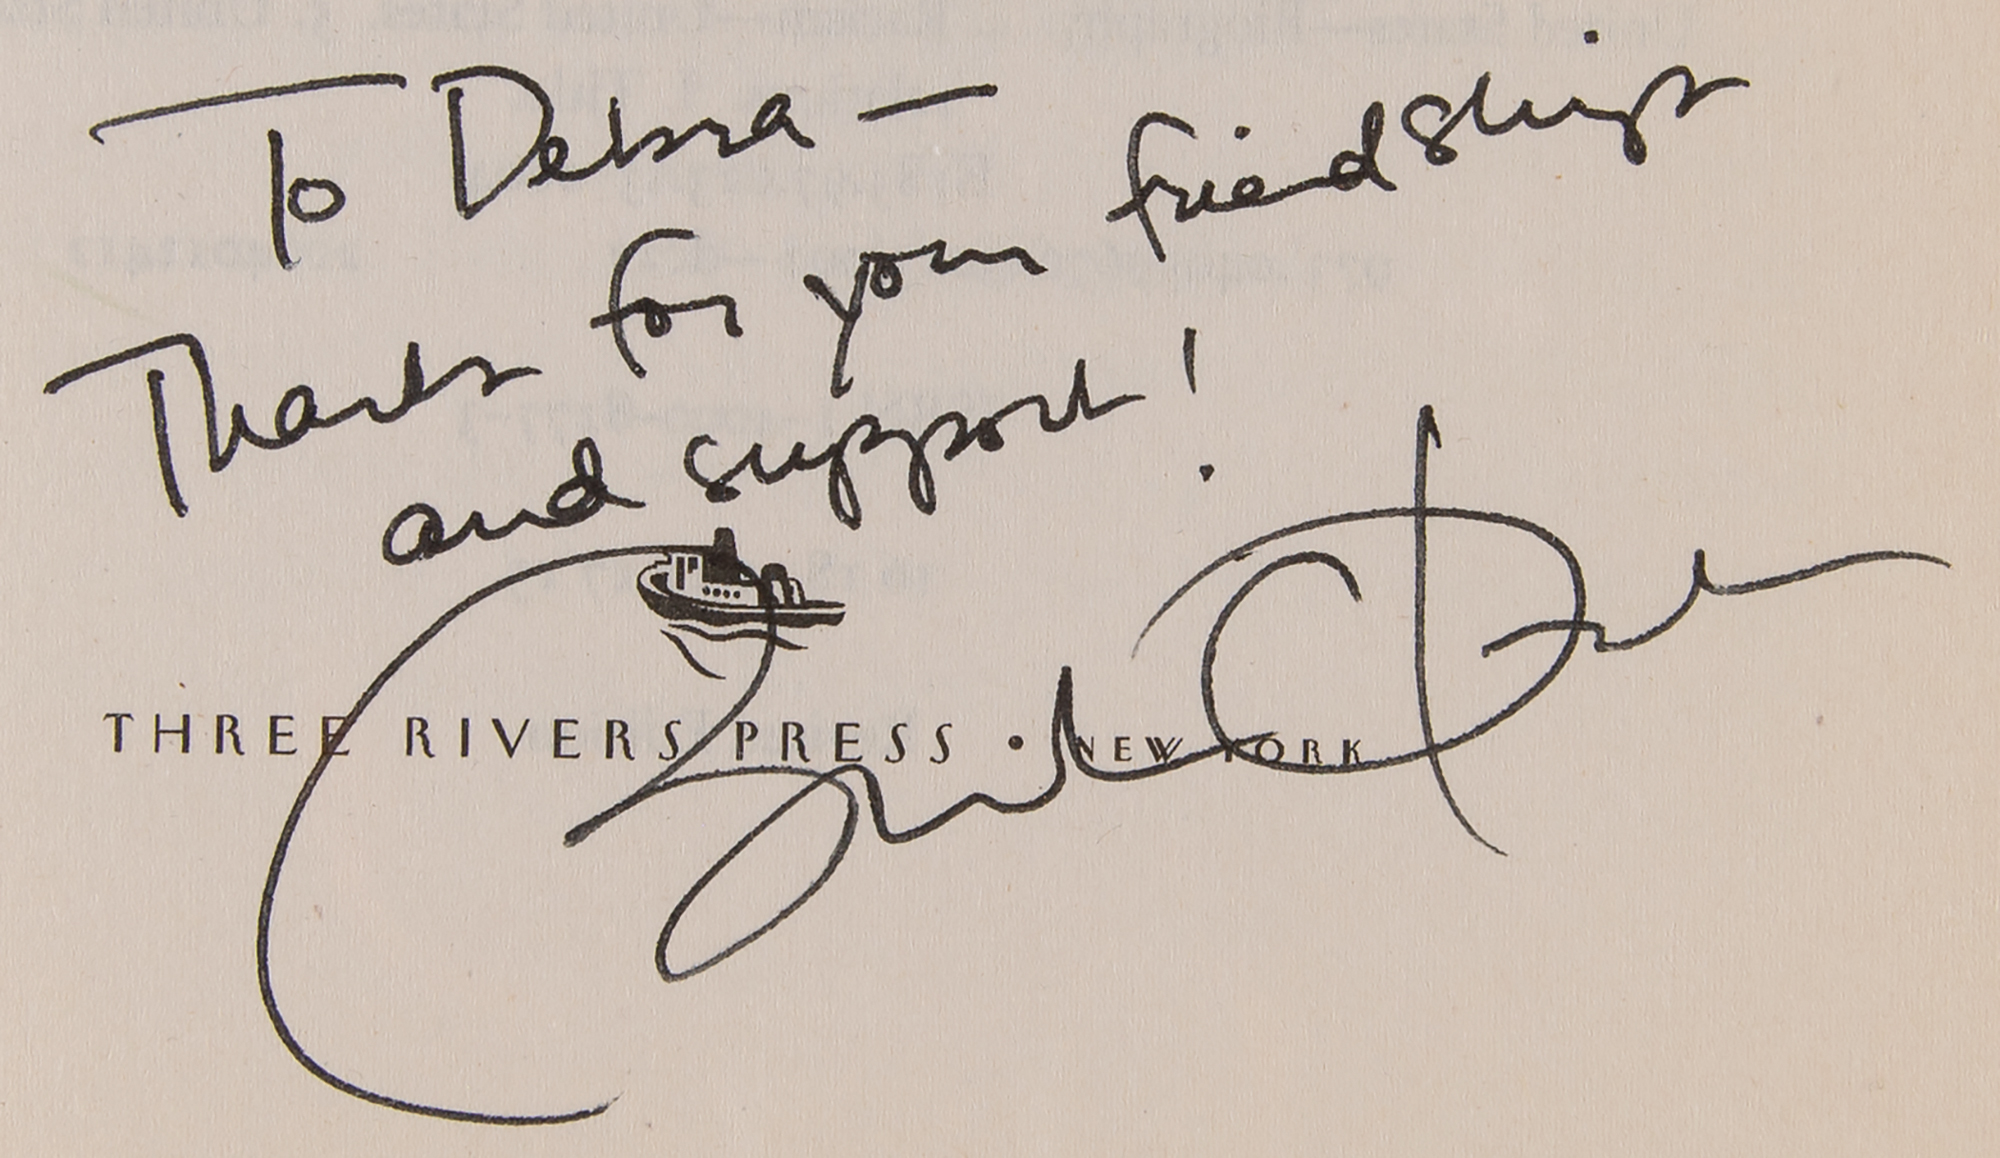 To Debra —
Thanks for your friendship
and support!
THREE RIVERS PRESS • NEW YORK